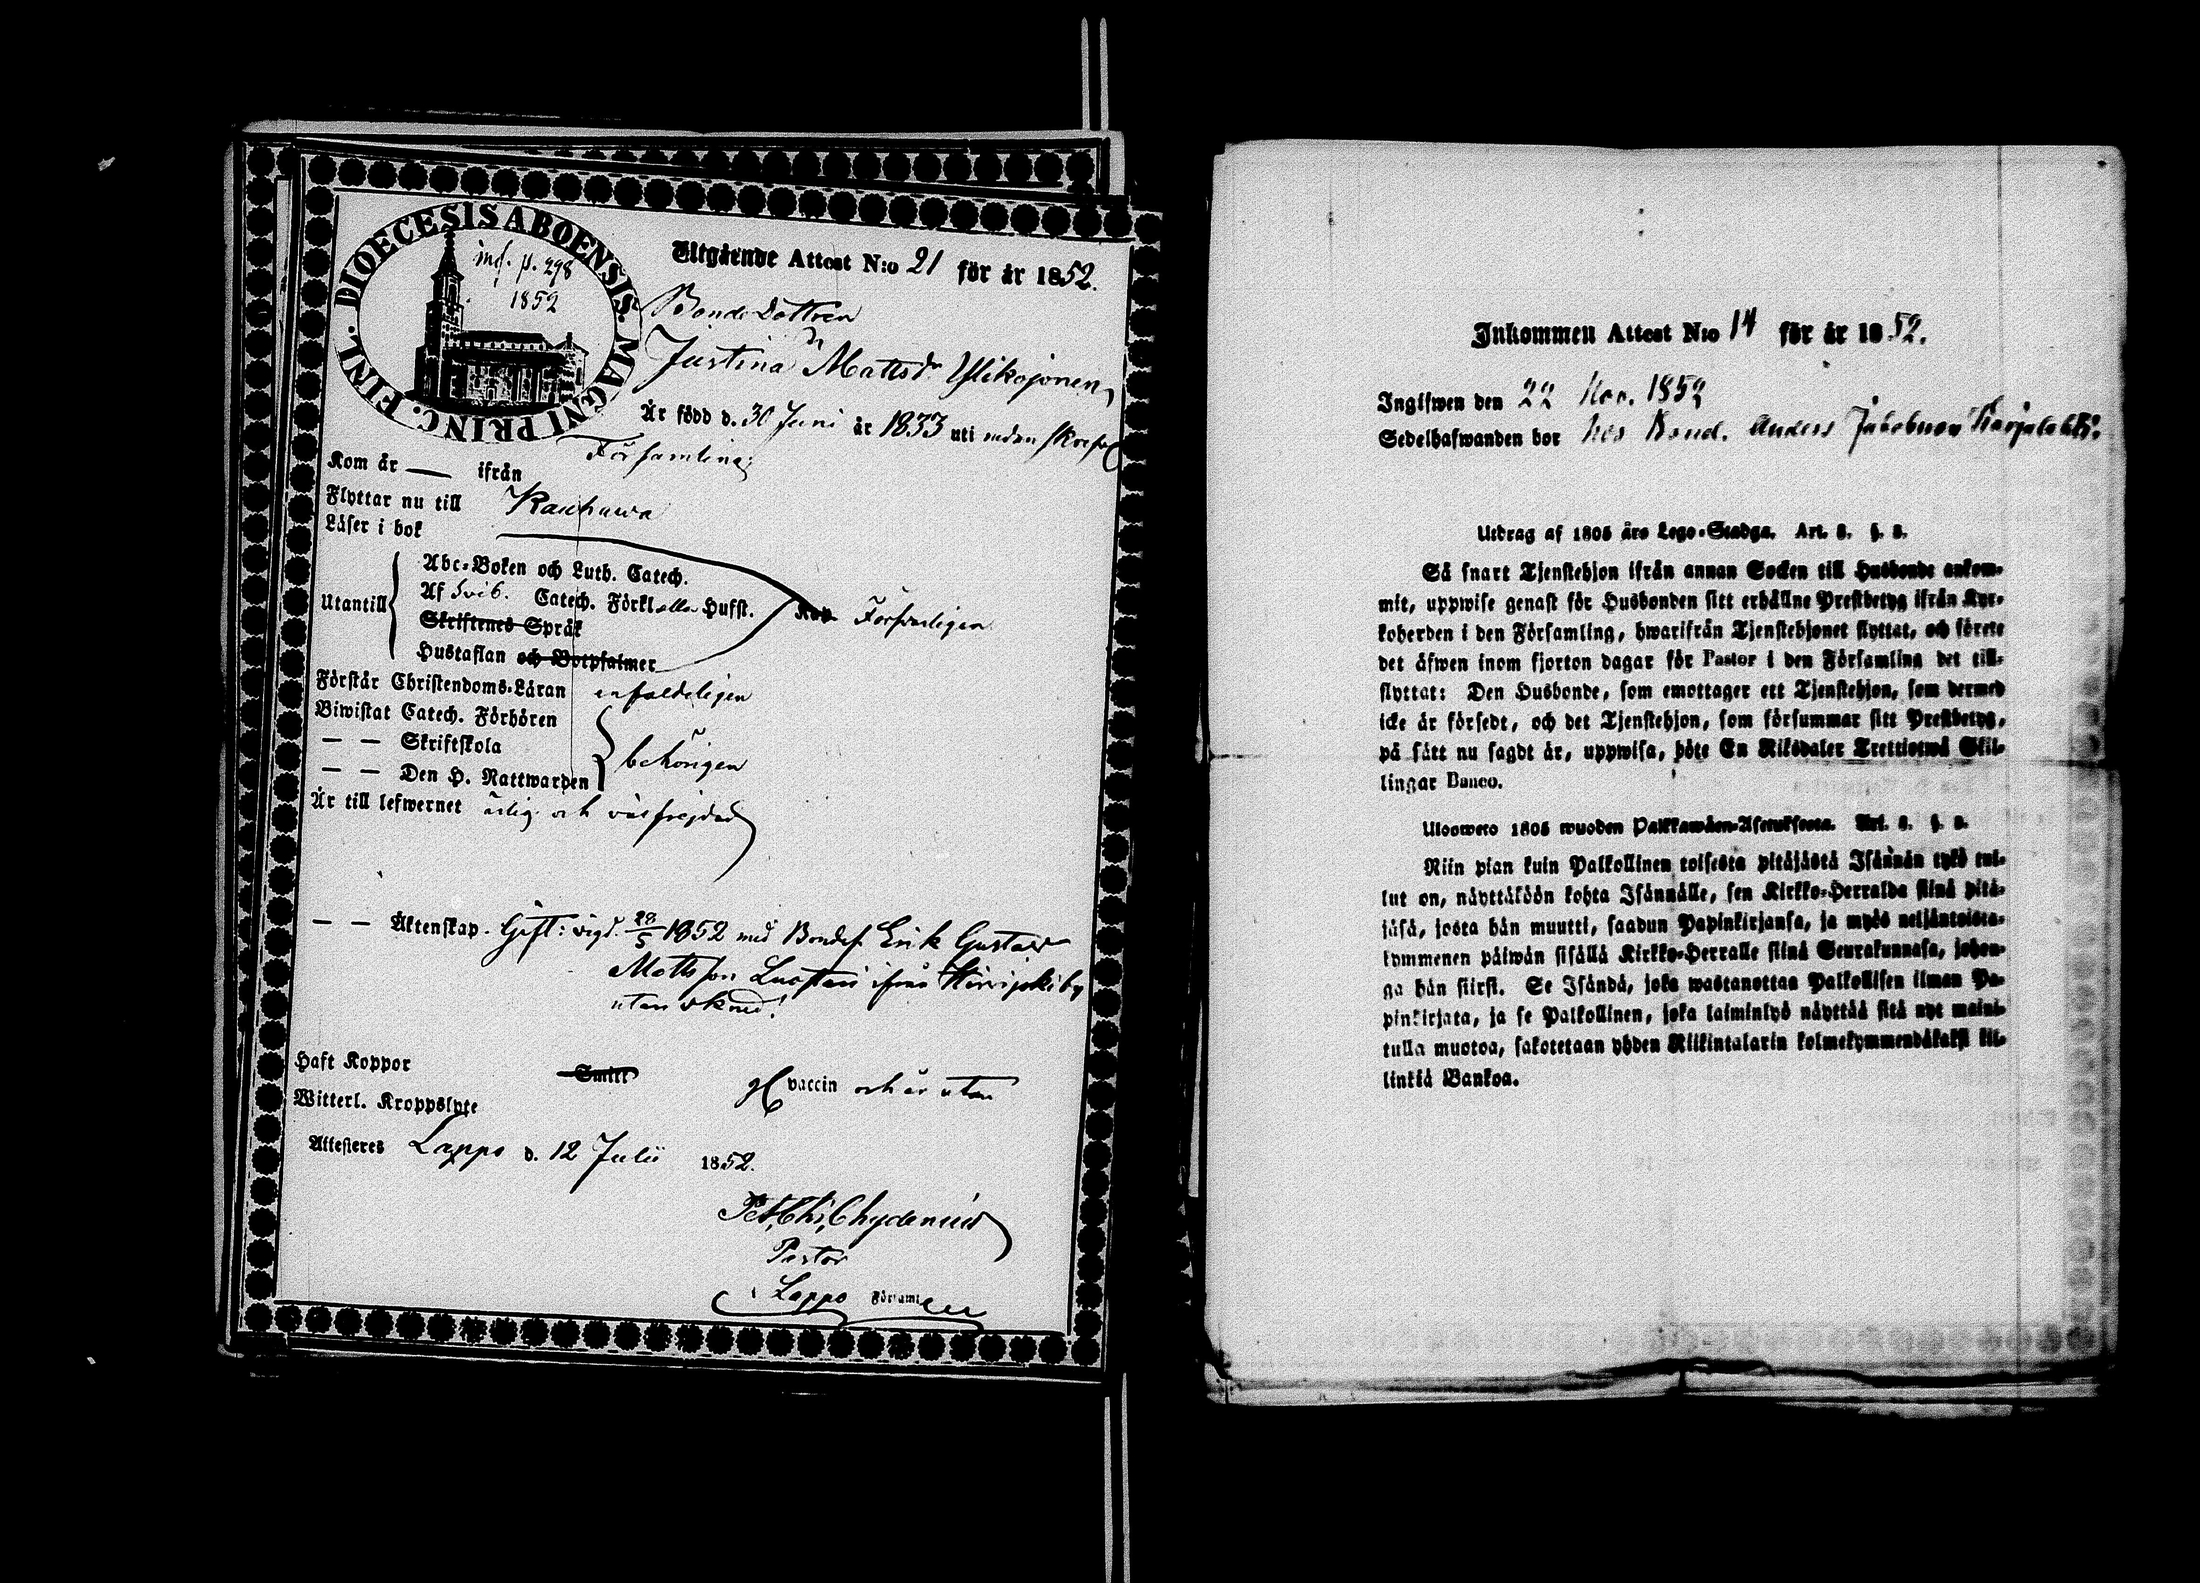 DIOECESIS ABOENSIS. MAGNI PRINC. FINL.
inf. p. 298
1852
Utgående Attest N:o 21 för år 1852.
Bonde Dottren
Justina Mattsdr Ylikojonen
Är född d. 30 Juni år 1833 uti nedan skrefne
Församling
Kom år — ifrån
Flyttar nu till Kauhawa
Läser i bok
Utantill
Abc-Boken och Luth. Catech.
Af Sveb. Catech. Förkl. Husst.
Skriftenes Språk
Hustaflan och Botpsalmer
Försvarligen
Förstår Christendoms-Läran enfaldeligen
Biwistat Catech. Förhören
— — Skriftskola
— — Den H. Nattwarden
behörigen
Är till lefwernet ärlig och välfrejdad
— — Äktenskap. Gift: vigd. 28/5 1852 med Bondes. Erik Gustaf
Mattsson ifrån
utan
Haft Koppor Smitt vaccin och är utan
Witterl. Kroppslyte
Attesteres Lappo d. 12 Julii 1852.
Pet. Chr. Chydenius
Pastor
i Lappo Församl
Inkommen Attest N:o 14 för år 1852.
Ingifwen den 22 Nov. 1852
Sedelhafwanden bor hos Bond. Anders Jakobsson
Utdrag af 1805 års Lego-Stadga. Art. 8. §. 2.
Så snart Tjenstehjon ifrån annan Socken till Husbonde ankom-
mit, uppwise genast för Husbonden sitt erhållne Prestbetyg ifrån Kyr-
koherden i den Församling, hwarifrån Tjenstehjonet flyttat, och förete
det äfwen inom fjorton dagar för Pastor i den Församling det till-
flyttat: Den Husbonde, som emottager ett Tjenstehjon, som dermed
icke är försedt, och det Tjenstehjon, som försummar sitt Prestbetyg,
på sätt nu sagdt är, uppwisa, böte En Riksdaler Trettiotwå Skil-
lingar Banco.
Uloswero 1805 wuoden Palkkawäen-Asetuksesta. Art. 8. §. 2.
Niin pian kuin Palkollinen toisesta pitäjästä Isännän tykö tul-
lut on, näyttäköön kohta Isännälle, sen Kirkko-Herralda siinä pitä-
jäsä, josta hän muutti, saadun Papinkirjansa, ja myös neljäntoista-
kymmenen päiwän sisällä Kirkko-Herralle siinä Seurakunnasa, johon-
ga hän siirsi. Se Isändä, joka wastanottaa Palkollisen ilman Pa-
pinkirjata, ja se Palkollinen, joka laiminlyö näyttää sitä nyt maini-
tulla muotoa, sakotetaan yhden Riikintalarin kolmekymmendäkaksi kil-
linkiä Bankoa.